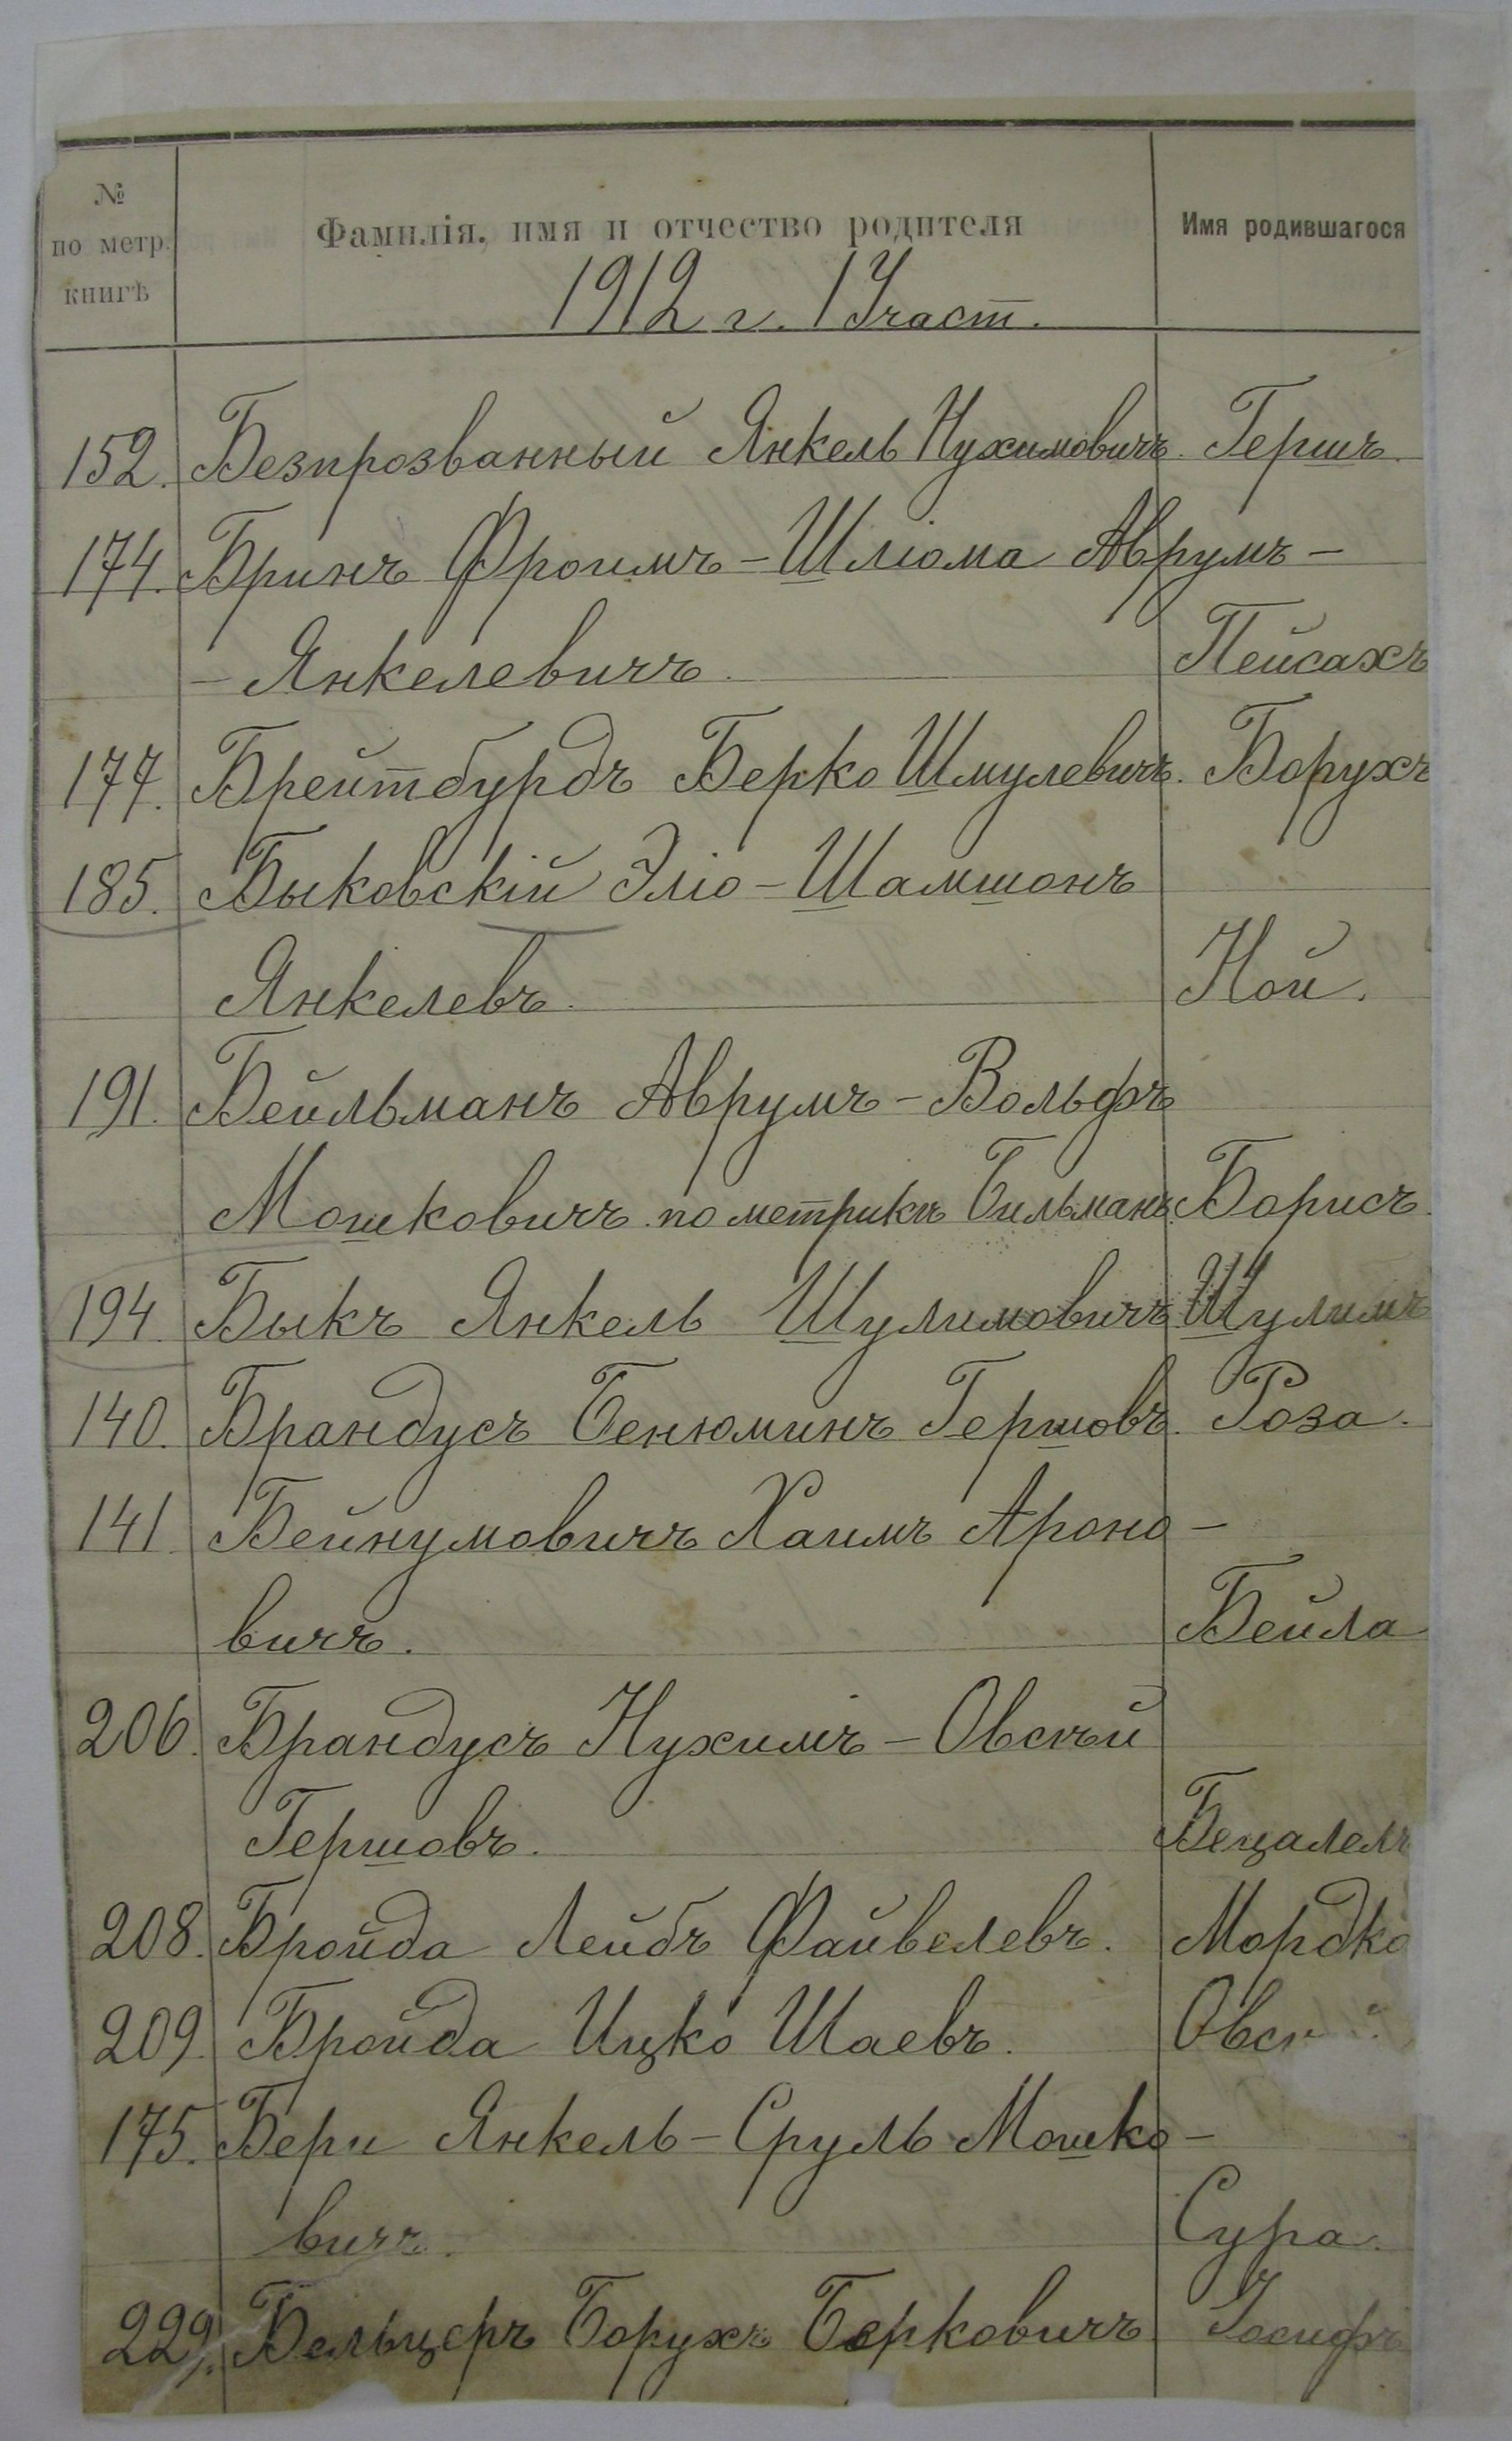 № по метр. книгѣ
Фамилія, имя и отчество родителя
Имя родившагося
1912 г. 1 Участ.
152. Безпрозванный Янкель Нухимовичъ. Гершъ.
174. Бринъ Фроимъ-Шліома Аврумъ-
-Янкелевичъ. Пейсахъ
177. Брейтбурдъ Берко Шмулевичъ. Борухъ
185. Быковскій Эліо-Шамшонъ
Янкелевъ. Ной.
191. Бейльманъ Аврумъ-Вольфъ
Мошковичъ по метрикѣ Бильманъ. Борисъ.
194. Быкъ Янкель Шулимовичъ Шулимъ
140. Брандусъ Бенюминъ Гершовъ. Роза.
141. Бейнумовичъ Хаимъ Ароно-
вичъ. Бейла
206. Брандусъ Нухимъ-Овсѣй
Гершовъ. Бецалелъ
208. Бройда Лейбъ Файвелевъ. Мордко
209. Бройда Ицко Шаевъ.
175. Бери Янкель-Сруль Мошко-
вичъ. Сура.
229. Бельцеръ Борухъ Берковичъ Іосифъ